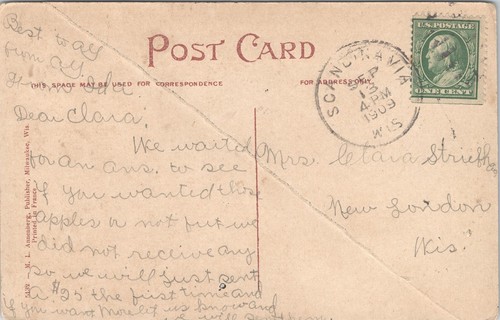 Best to all
from all
From Ida
POST CARD
THIS SPACE MAY BE USED FOR CORRESPONDENCE
FOR ADDRESS ONLY.
SCANDINAVIA
SEP
13
4 PM
1909
WIS
U.S. POSTAGE
ONE CENT
Dear Clara,
We waited
for an ans. to see
if you wanted those
apples or not but we
did not receive any
so we will just sent
a $25 the first time and
if you want more let us know and
we will send them
Mrs. Clara
New London
Wis.
5123 E. L. Annenberg, Publisher, Milwaukee, Wis.
Printed in France